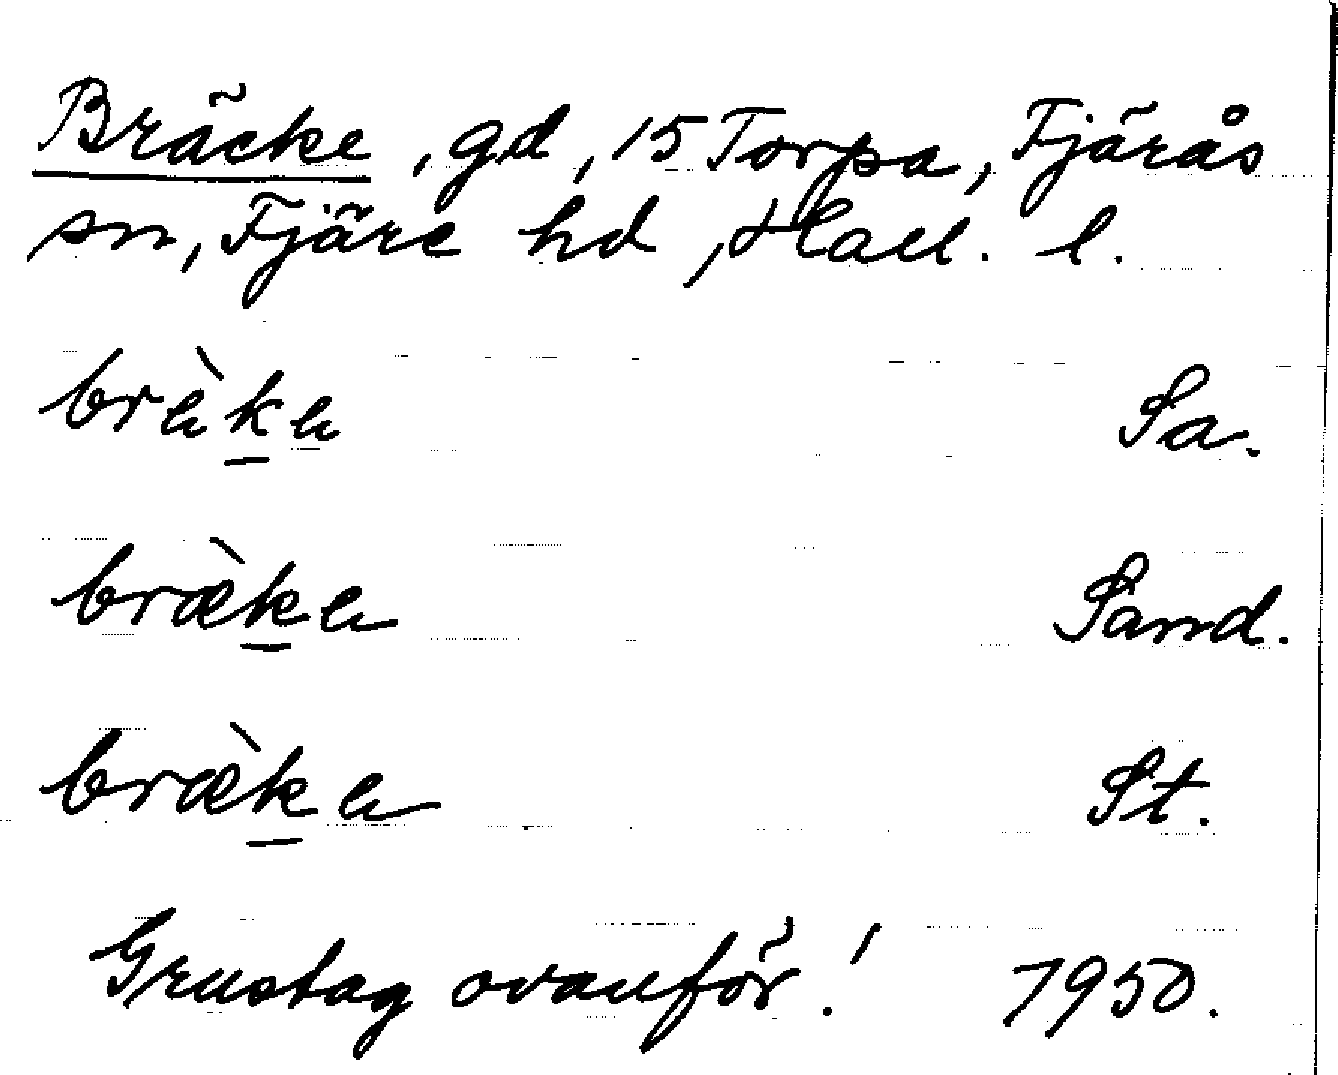 Bräcke, gd, 15 Torpa, Fjärås
sn, Fjäre hd, Hall. l.
brὲka Sa.
bræ̀ka Sand.
bræ̀ka St.
Grustag ovanför! 1950.